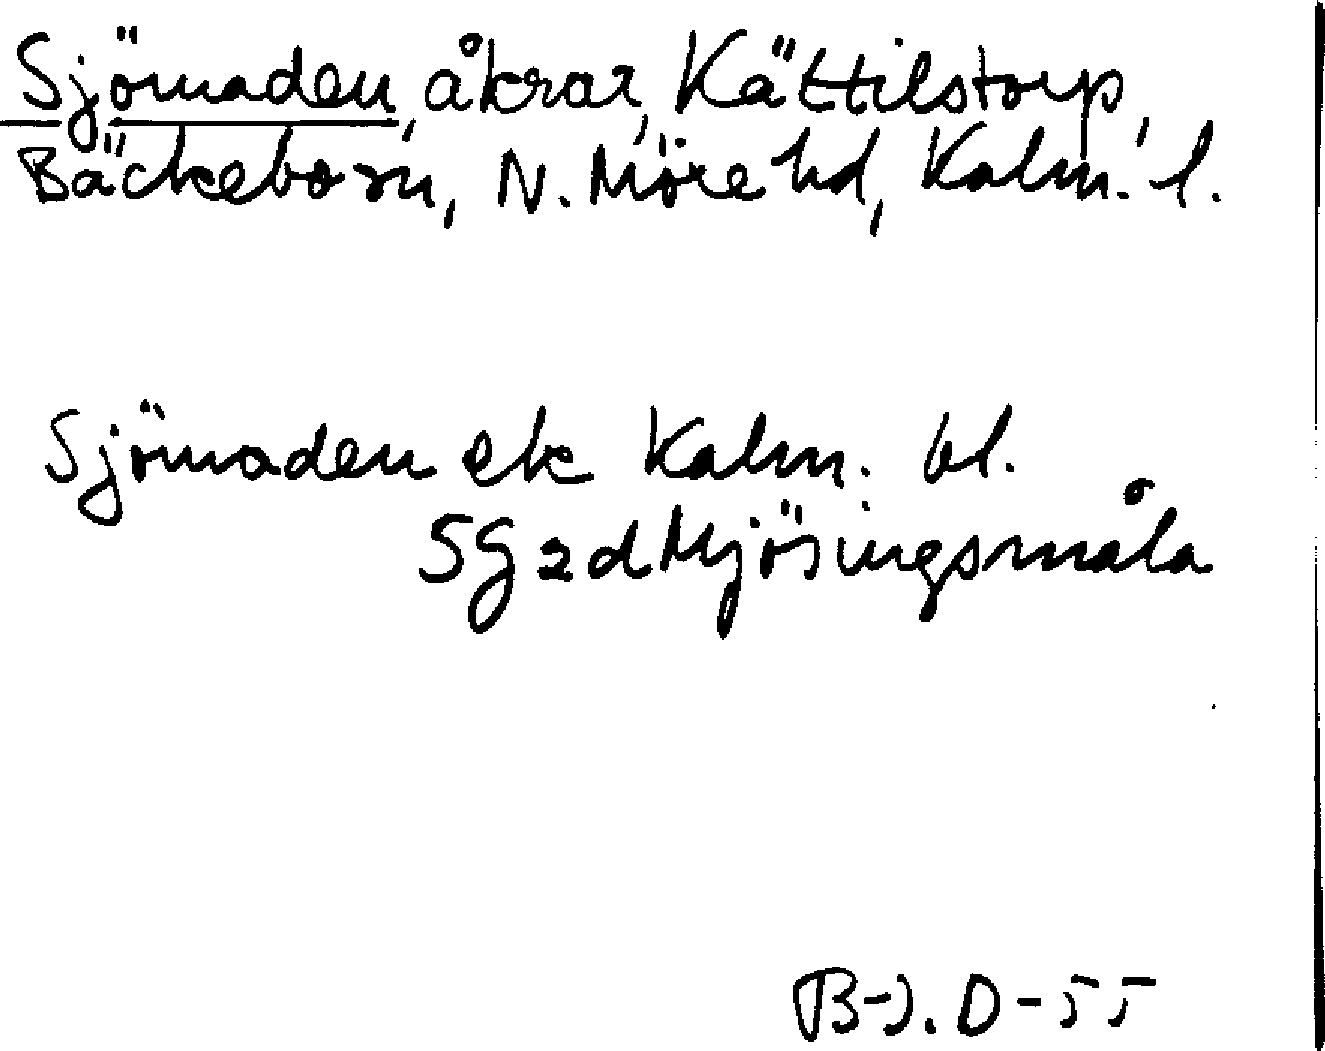 Sjömaden, åkrar, Kättilstorp,
Bäckeborn, N. Möre hd, Kalm. l.
Sjömaden ek Kalm. bl.
5G2d Mjösingsmåla
B-J. D-55